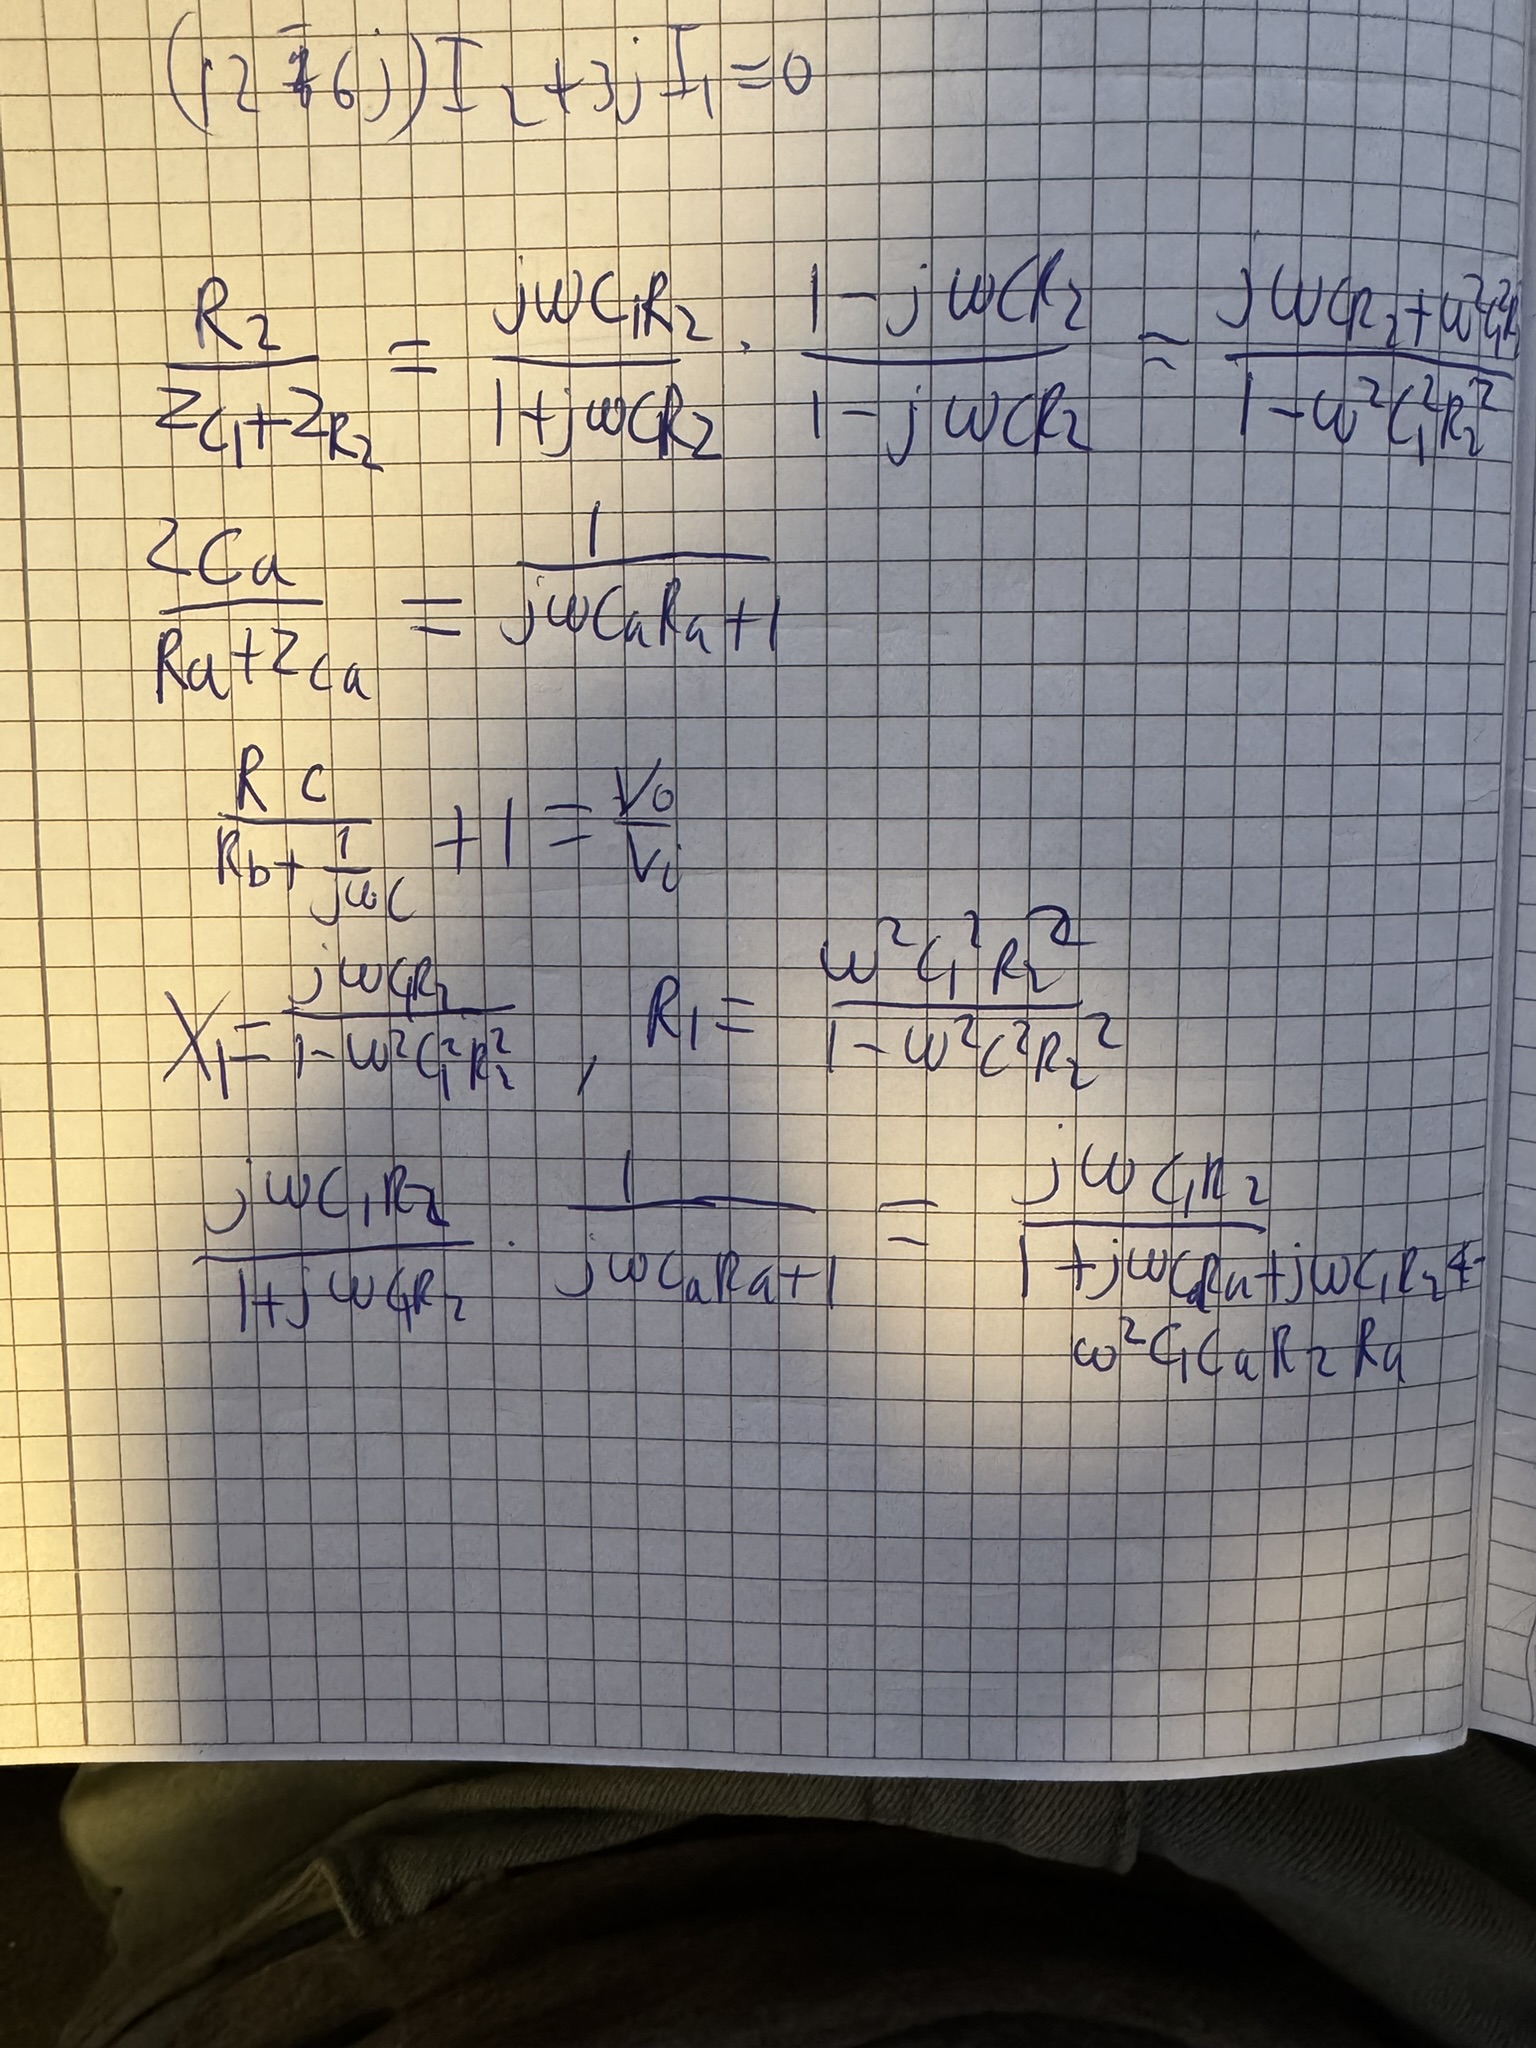 (12 - 6j) I₂ + 3j I₁ = 0
R₂ / (Z_C₁ + Z_R₂) = jωC₁R₂ / (1 + jωC₁R₂) · (1 - jωC₁R₂) / (1 - jωC₁R₂) = (jωC₁R₂ + ω²C₁²R₂²) / (1 - ω²C₁²R₂²)
Z_Ca / (Ra + Z_Ca) = 1 / (jωCaRa + 1)
RC / (Rb + 1/(jωC)) + 1 = Vo / Vi
X₁ = jωC₁R₂ / (1 - ω²C₁²R₂²) , R₁ = ω²C₁²R₂² / (1 - ω²C²R₂²)
jωC₁R₂ / (1 + jωC₁R₂) · 1 / (jωCaRa + 1) = jωC₁R₂ / (1 + jωCaRa + jωC₁R₂ +
ω²C₁CaR₂Ra)